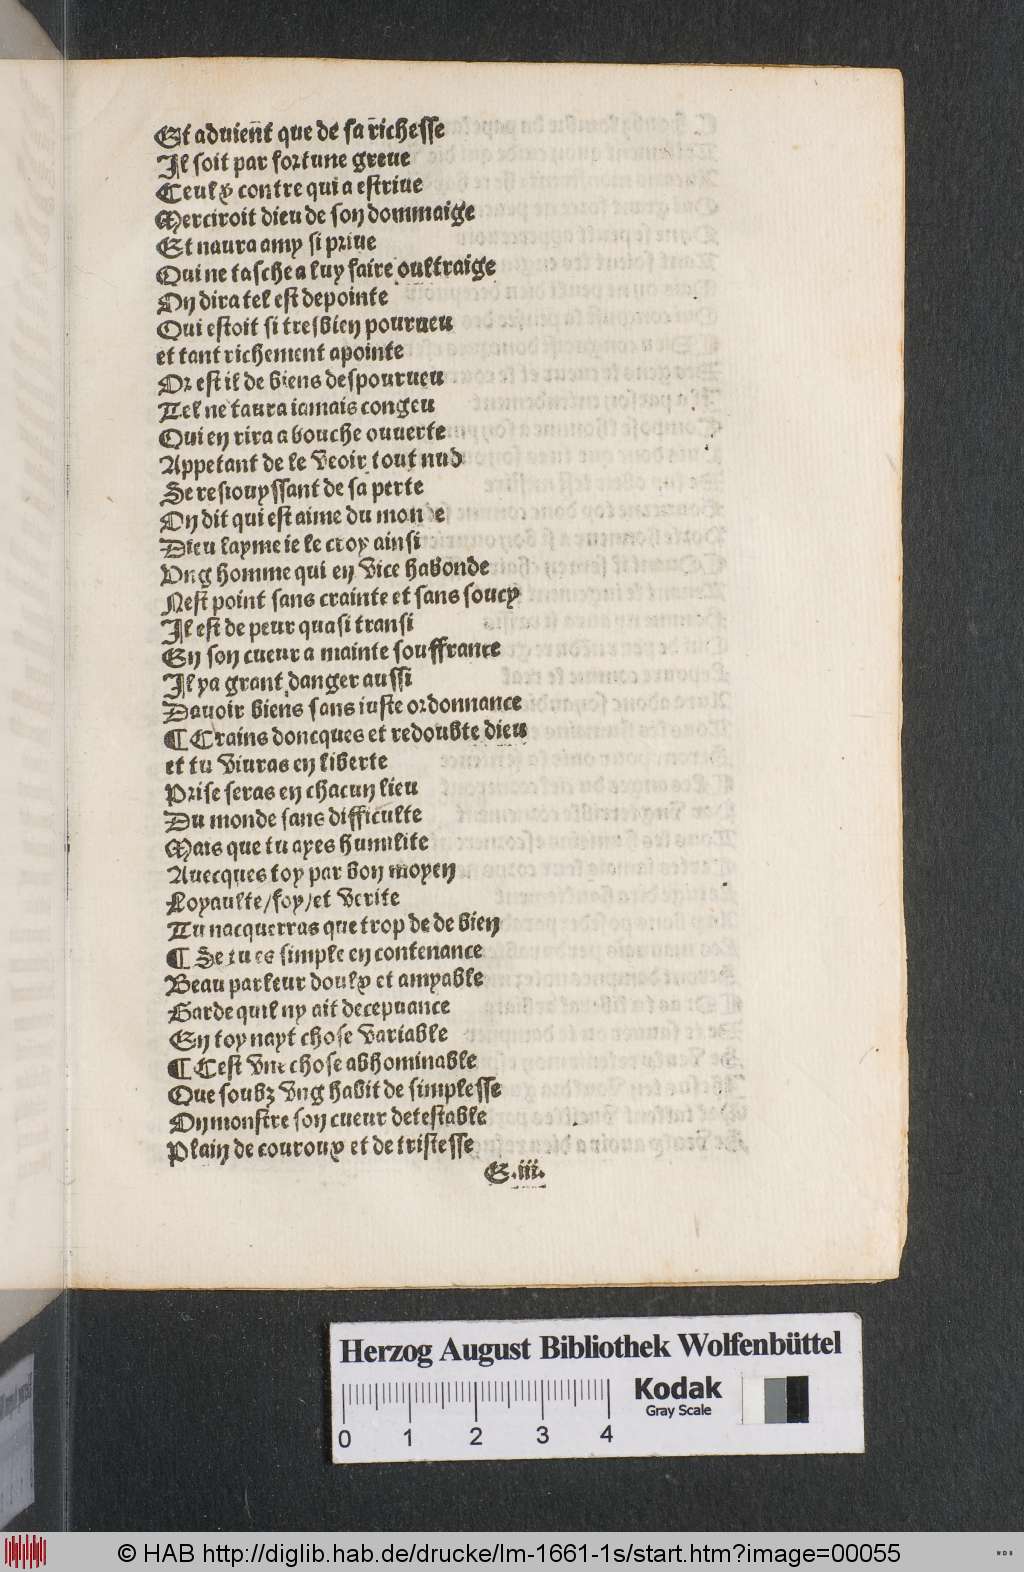 Et aduient que de sa richesse
Il soit par fortune greue
Ceulx contre qui a estriue
Merciroit dieu de son dommaige
Et naura amy si priue
Qui ne tasche a luy faire oultraige
On dira tel est depointe
Qui estoit si tresbien pourueu
et tant richement apointe
Or est il de biens despourueu
Tel ne laura iamais congeu
Qui en rira a bouche ouuerte
Appetant de le veoir tout nud
Se resiouyssant de sa perte
On dit qui est aime du monde
Dieu layme ie le croy ainsi
Vng homme qui en vice habonde
Nest point sans crainte et sans soucy
Il est de peur quasi transi
En son cueur a mainte souffrance
Il ya grant danger aussi
Dauoir biens sans iuste ordonnance
¶ Crains doncques et redoubte dieu
et tu viuras en liberte
Prise seras en chacun lieu
Du monde sans difficulte
Mais que tu ayes humilite
Auecques toy par bon moyen
Loyaulte/foy/et verite
Tu nacquerras que trop de de bien
¶ Se tu es simple en contenance
Beau parleur doulx et amyable
Garde quil ny ait decepuance
En toy nayt chose variable
¶ Cest vne chose abhominable
Que soubz vng habit de simplesse
On monstre son cueur detestable
Plain de couroux et de tristesse
E.iii.
Herzog August Bibliothek Wolfenbüttel
Kodak
Gray Scale
0 1 2 3 4
© HAB http://diglib.hab.de/drucke/lm-1661-1s/start.htm?image=00055